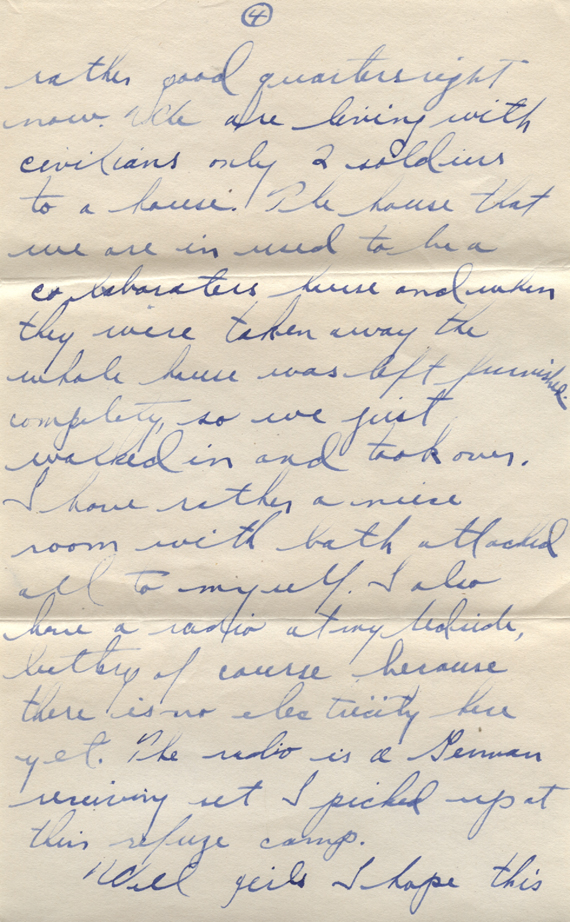 4
rather good quarters right
now. We are living with
civilians only 2 soldiers
to a house. The house that
we are in used to be a
collaboraters house and when
they were taken away the
whole house was left furnished
completely, so we just
walked in and took over.
I have rather a niece
room with bath attached
all to myself. I also
have a radio at my bedside,
battery of course because
there is no electricity here
yet. The radio is a German
receiving set I picked up at
this refuge camp.
Well girls I hope this